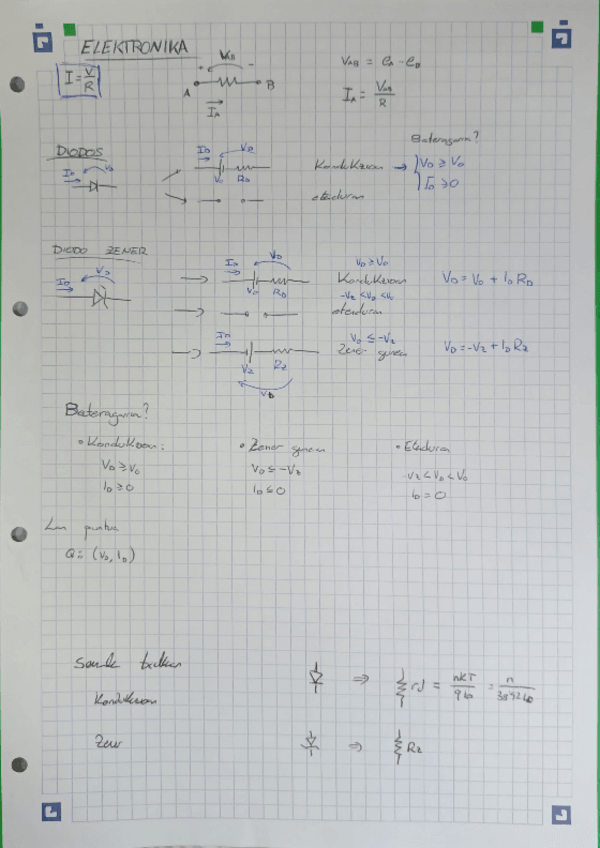 ELEKTRONIKA
I = V/R
VAB
+ -
A B
IA
VAB = eA - eB
IA = VAB/R
DIODOS
ID VD
V0 RD
Kondukzioan → VD ≥ V0
ID ≥ 0
Bateragarria?
etenduran
DIODO ZENER
ID VD
ID VD
V0 RD
VD ≥ V0
Kondukzioan VD = V0 + ID RD
-VZ < VD < V0
etenduran
ID
VZ RZ
VD
VD ≤ -VZ
Zener gunean VD = -VZ + ID RZ
Bateragarria?
• Kondukzioan:
VD ≥ V0
ID ≥ 0
• Zener gunean
VD ≤ -VZ
ID ≤ 0
• Etenduran
-VZ < VD < V0
ID = 0
Lan puntua
Q = (VD, ID)
Seinale txikian
Kondukzioan
⇒ rd = nKT/qID = n/38'92 ID
Zener
⇒ RZ